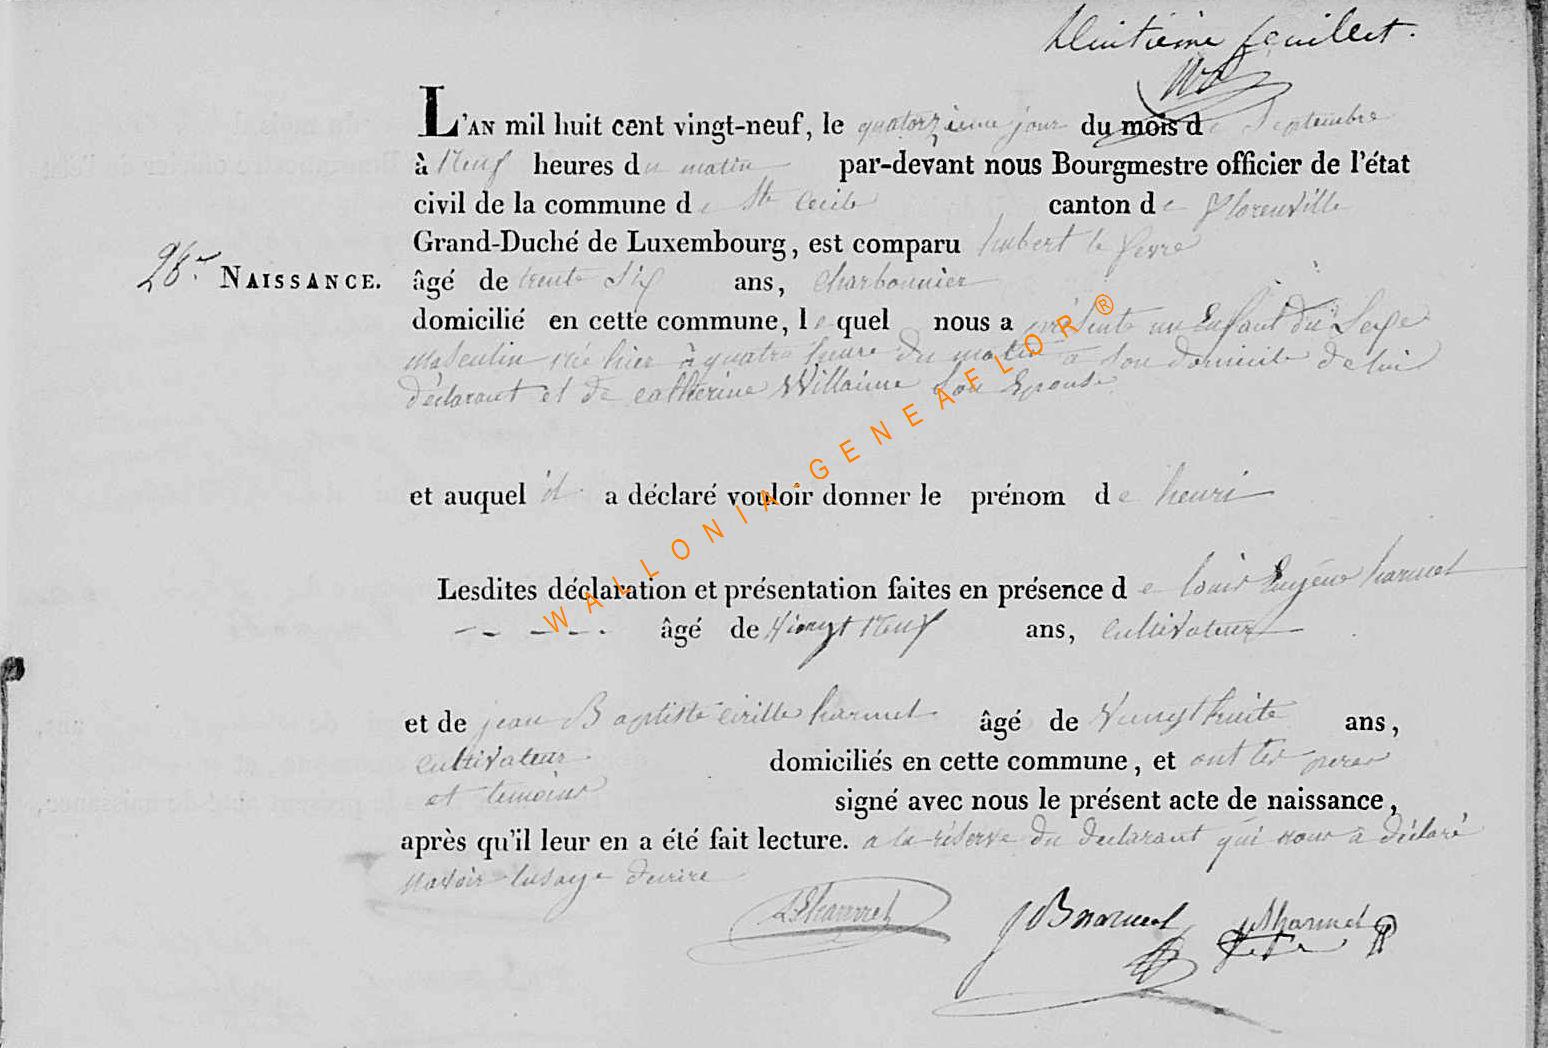 huitième feuillet.
L'AN mil huit cent vingt-neuf, le quatorzieme jour du mois de Septembre
à Neuf heures du matin par-devant nous Bourgmestre officier de l'état
civil de la commune de Ste Cecile canton de florenville
Grand-Duché de Luxembourg, est comparu hubert le fevre
26e NAISSANCE. âgé de trente Six ans, Charbonnier
domicilié en cette commune, lequel nous a présenté un Enfant du Sexe
masculin né hier à quatre heure du matin à Son domicile de lui
déclarant et de catherine Willaime Son Epouse
et auquel il a déclaré vouloir donner le prénom de henri
Lesdites déclaration et présentation faites en présence de louis Eugéne harmel
âgé de Vingt Neuf ans, cultivateur
et de jean Baptiste cirille harmel âgé de Vingt huite ans,
cultivateur domiciliés en cette commune, et ont les
et temoins signé avec nous le présent acte de naissance,
après qu'il leur en a été fait lecture. a la réserve du declarant qui nous à déclaré
navoir lusage decrire
LEharmel JBharmel harmel
WALLONIA-GENEAFLOR®